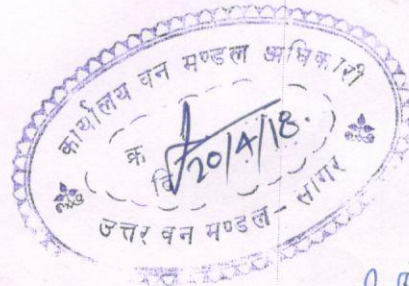 कार्यालय वन मण्डल अधिकारी
क्र
दि 20/4/18.
उत्तर वन मण्डल - सागर